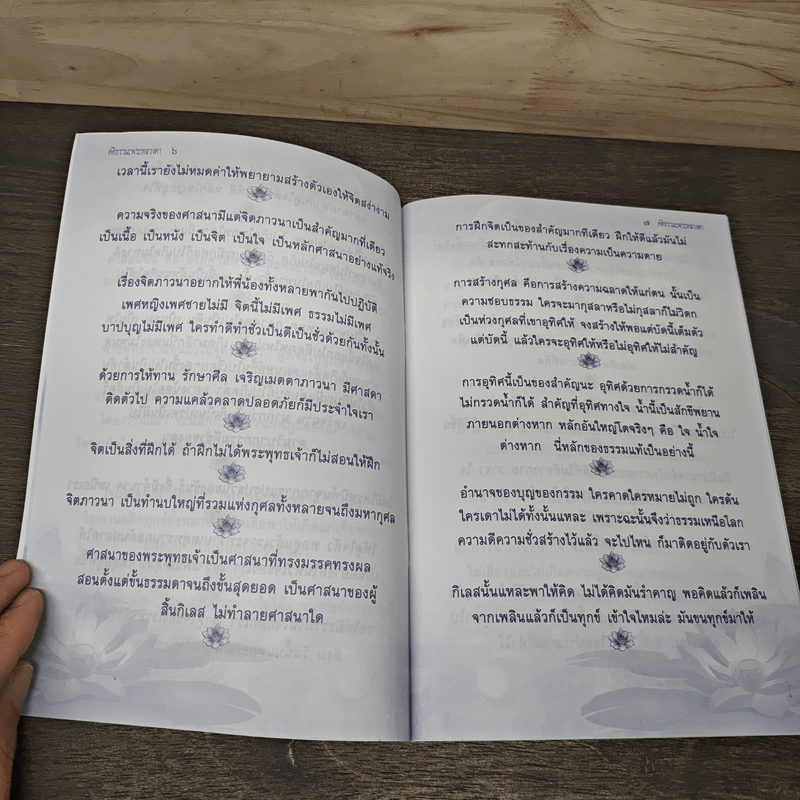 คติธรรมะพระหลวงตา ๖
เวลานี้เรายังไม่หมดค่าให้พยายามสร้างตัวเองให้จิตสง่างาม
ความจริงของศาสนามีแต่จิตภาวนาเป็นสำคัญมากที่เดียว
เป็นเนื้อ เป็นหนัง เป็นจิต เป็นใจ เป็นหลักศาสนาอย่างแท้จริง
เรื่องจิตภาวนาอยากให้พี่น้องทั้งหลายพากันไปปฏิบัติ
เพศหญิงเพศชายไม่มี จิตนี้ไม่มีเพศ ธรรมไม่มีเพศ
บาปบุญไม่มีเพศ ใครทำดีทำชั่วเป็นดีเป็นชั่วด้วยกันทั้งนั้น
ด้วยการให้ทาน รักษาศีล เจริญเมตตาภาวนา มีศาสดา
ติดตัวไป ความแคล้วคลาดปลอดภัยก็มีประจำใจเรา
จิตเป็นสิ่งที่ฝึกได้ ถ้าฝึกไม่ได้พระพุทธเจ้าก็ไม่สอนให้ฝึก
จิตภาวนา เป็นทำนบใหญ่ที่รวมแห่งกุศลทั้งหลายจนถึงมหากุศล
ศาสนาของพระพุทธเจ้าเป็นศาสนาที่ทรงมรรคทรงผล
สอนตั้งแต่ขั้นธรรมดาจนถึงขั้นสุดยอด เป็นศาสนาของผู้
สิ้นกิเลส ไม่ทำลายศาสนาใด
๗ คติธรรมะพระหลวงตา
การฝึกจิตเป็นของสำคัญมากทีเดียว ฝึกให้ดีแล้วมันไม่
สะทกสะท้านกับเรื่องความเป็นความตาย
การสร้างกุศล คือการสร้างความฉลาดให้แก่ตน นั้นเป็น
ความชอบธรรม ใครจะมากุสลาหรือไม่กุสลาก็ไม่วิตก
เป็นห่วงกุศลที่เขาอุทิศให้ จงสร้างให้พอแต่บัดนี้เต็มตัว
แต่บัดนี้ แล้วใครจะอุทิศให้หรือไม่อุทิศให้ไม่สำคัญ
การอุทิศนี้เป็นของสำคัญนะ อุทิศด้วยการกรวดน้ำก็ได้
ไม่กรวดน้ำก็ได้ สำคัญที่อุทิศทางใจ น้ำนี้เป็นสักขีพยาน
ภายนอกต่างหาก หลักอันใหญ่โตจริงๆ คือ ใจ น้ำใจ
ต่างหาก นี่หลักของธรรมแท้เป็นอย่างนี้
อำนาจของบุญของกรรม ใครคาดใครหมายไม่ถูก ใครด้น
ใครเดาไม่ได้ทั้งนั้นแหละ เพราะฉะนั้นจึงว่าธรรมเหนือโลก
ความดีความชั่วสร้างไว้แล้ว จะไปไหน ก็มาติดอยู่กับตัวเรา
กิเลสนั้นแหละพาให้คิด ไม่ได้คิดมันรำคาญ พอคิดแล้วก็เพลิน
จากเพลินแล้วก็เป็นทุกข์ เข้าใจไหมล่ะ มันขนทุกข์มาให้